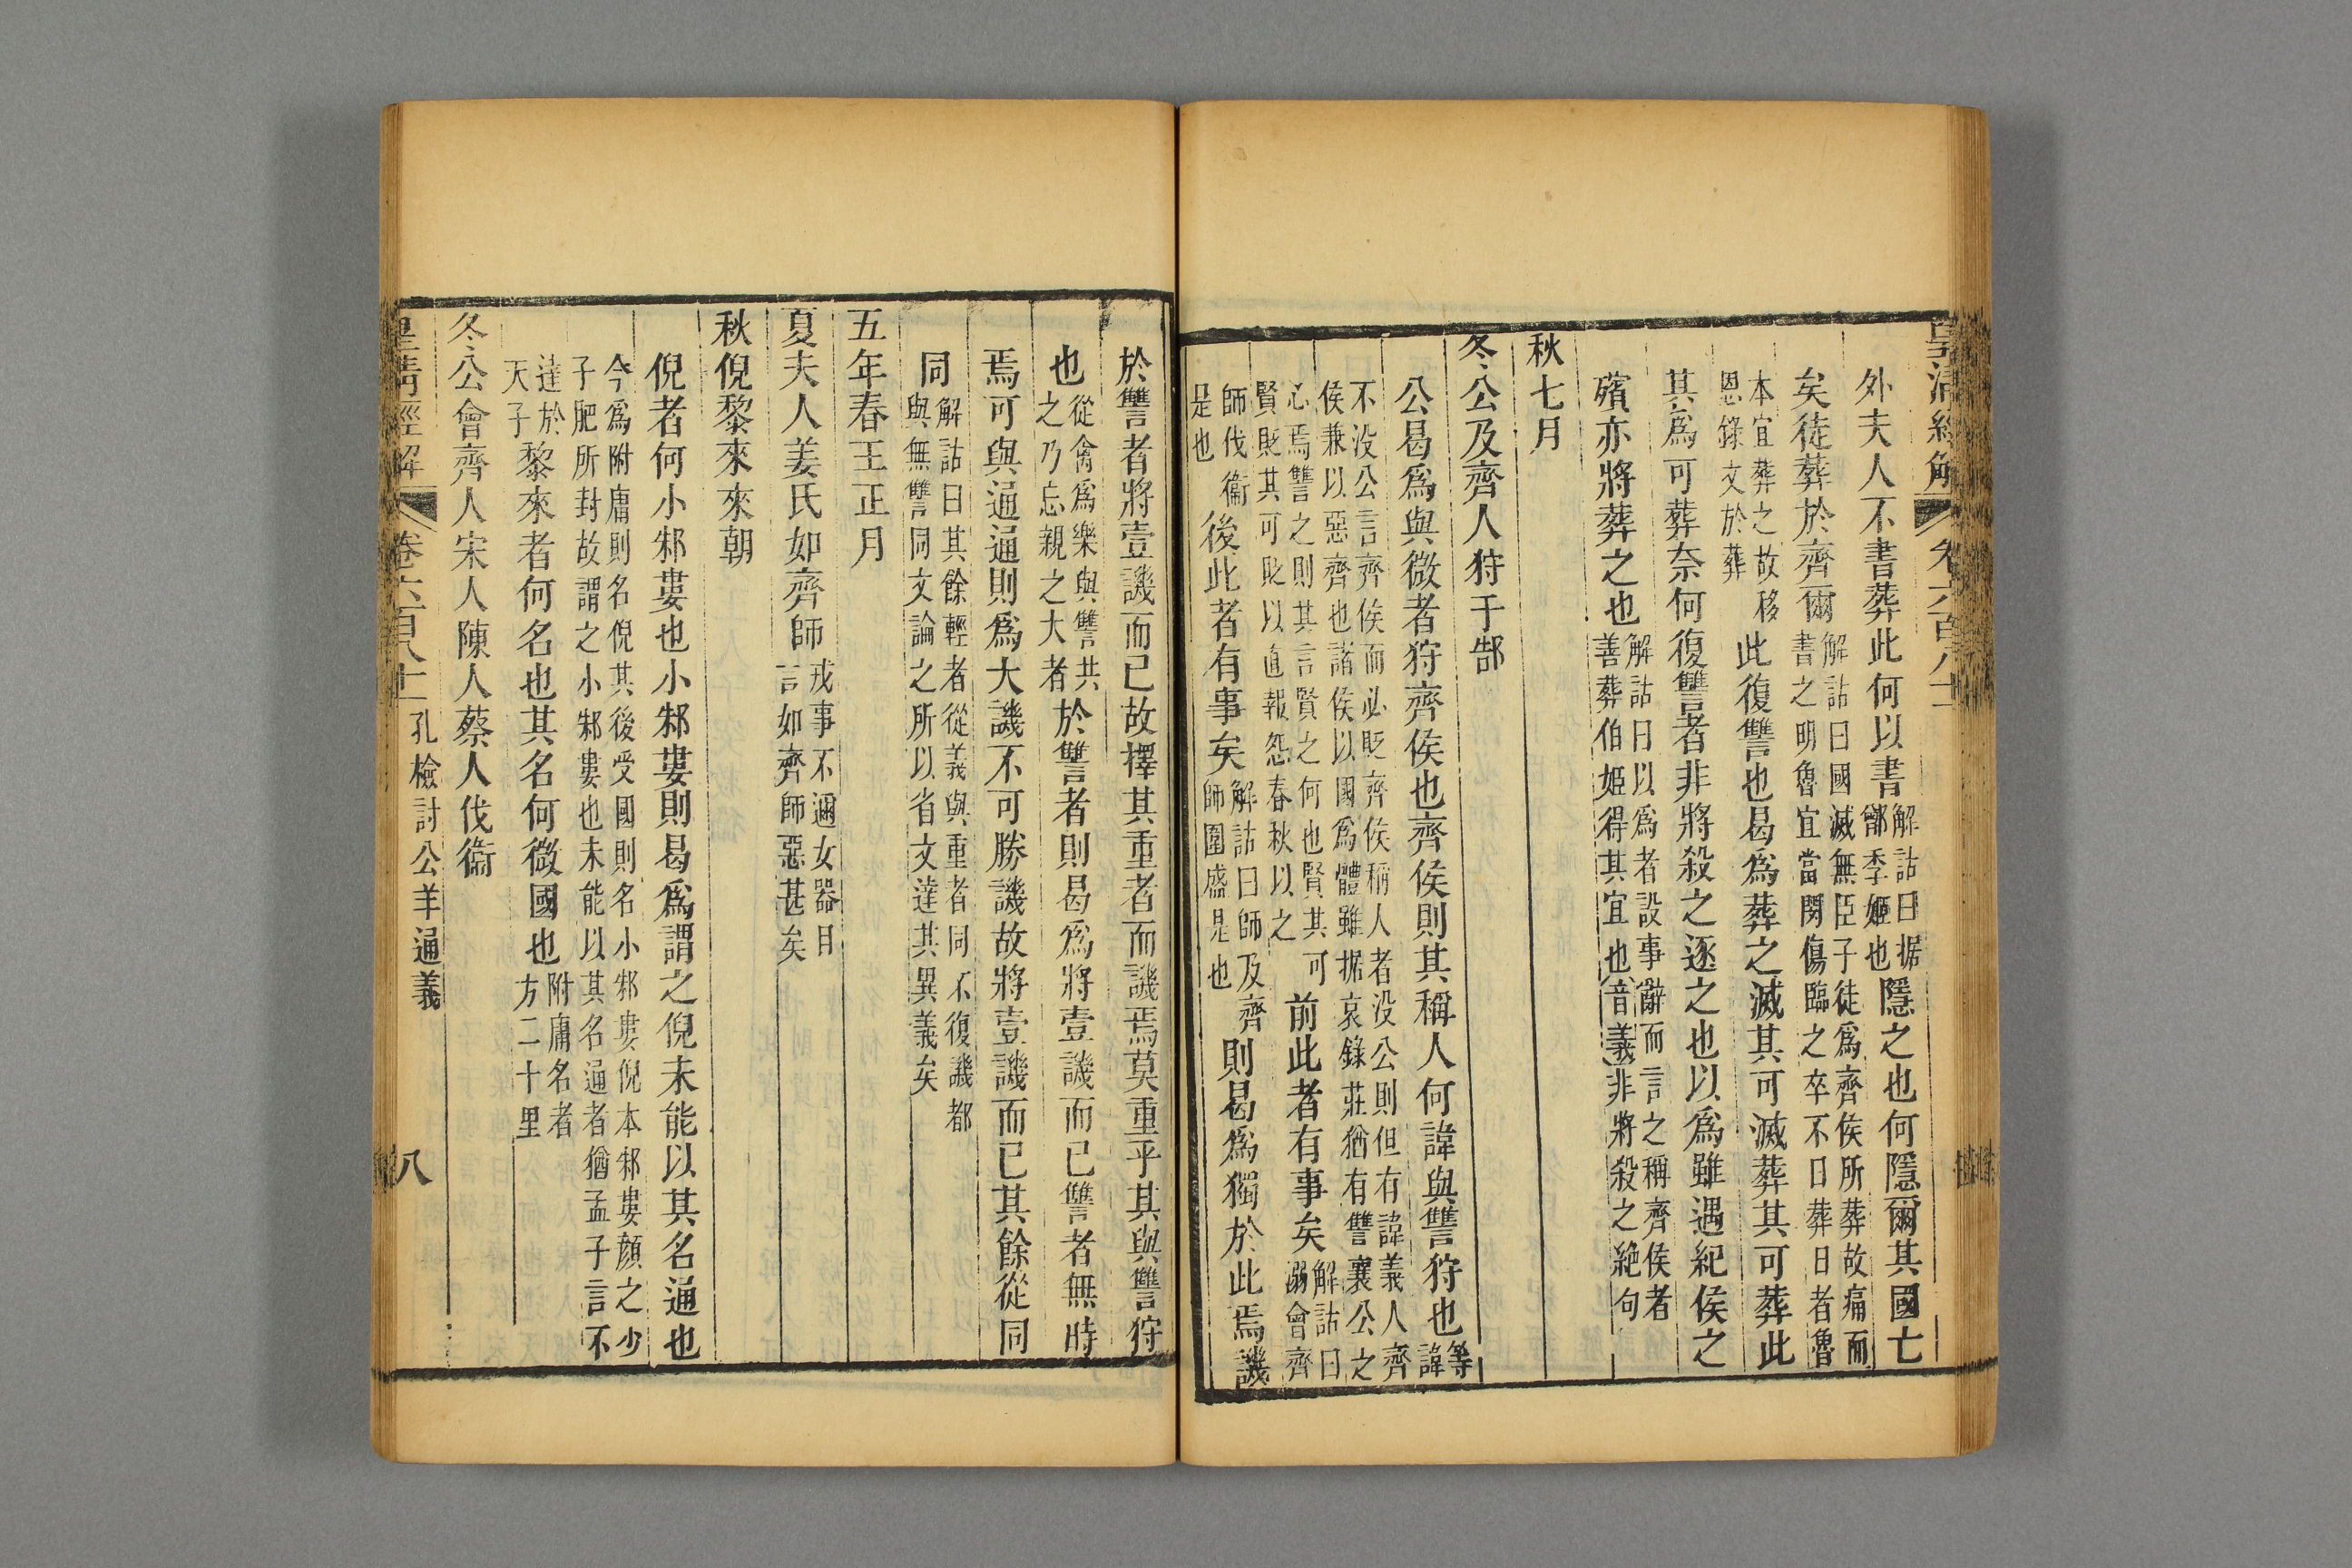 皇清經解 卷六百八十一
外夫人不書葬此何以書解詁曰据鄫季姬也隱之也何隱爾其國亡
矣徒葬於齊爾解詁曰國滅無臣子徒爲齊侯所葬故痛而書之明魯宜當閔傷臨之卒不日葬日者魯
本宜葬之故移恩錄文於葬此復讐也曷爲葬之滅其可滅葬其可葬此
其爲可葬奈何復讐者非將殺之逐之也以爲雖遇紀侯之
殯亦將葬之也解詁曰以爲者設事辭而言之稱齊侯者善葬伯姬得其宜也音義非將殺之絶句
秋七月
冬公及齊人狩于郜
公曷爲與微者狩齊侯也齊侯則其稱人何諱與讐狩也等諱
不没公言齊侯而必貶齊侯稱人者没公則但有諱義人齊侯兼以惡齊也諸侯以國爲體雖据哀錄莊猶有讐襄公之
心焉讐之則其言賢之何也賢其可賢貶其可貶以直報怨春秋以之前此者有事矣解詁曰溺會齊
師伐衞是也後此者有事矣解詁曰師及齊師圍盛是也則曷爲獨於此焉譏
於讐者將壹譏而已故擇其重者而譏焉莫重乎其與讐狩
也從禽爲樂與讐共之乃忘親之大者於讐者則曷爲將壹譏而已讐者無時
焉可與通通則爲大譏不可勝譏故將壹譏而已其餘從同
同解詁曰其餘輕者從義與重者同不復譏都與無讐同文論之所以省文達其異義矣
五年春王正月
夏夫人姜氏如齊師戎事不邇女器曰言如齊師惡甚矣
秋倪黎來來朝
倪者何小邾婁也小邾婁則曷爲謂之倪未能以其名通也
今爲附庸則名倪其後受國則名小邾婁倪本邾婁顔之少子肥所封故謂之小邾婁也未能以其名通者猶孟子言不
達於天子黎來者何名也其名何微國也附庸名者方二十里
冬公會齊人宋人陳人蔡人伐衞
皇清經解 卷六百八十一 孔檢討公羊通義 八